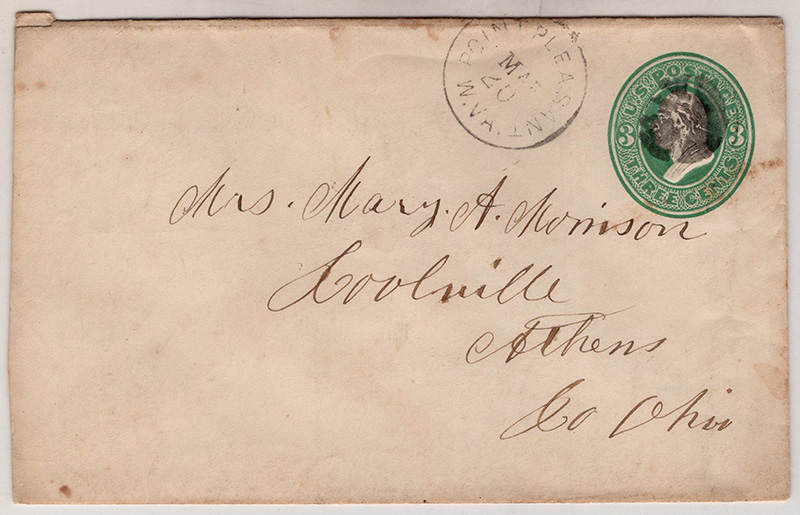 POINT PLEASANT W.VA.
MAR
20
U.S. POSTAGE
3 3
THREE CENTS
Mrs. Mary. A. Morrison
Coolville
Athens
Co Ohio